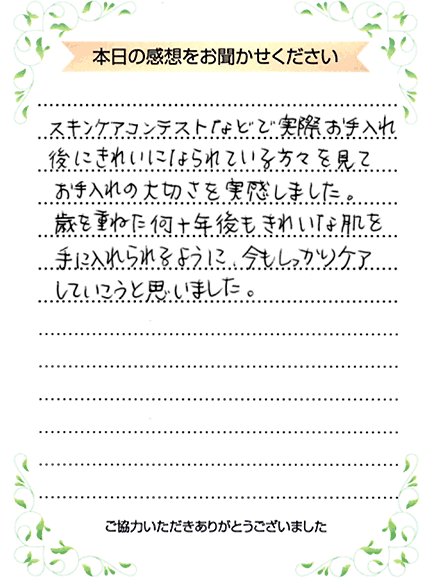 本日の感想をお聞かせください
スキンケアコンテストなどで実際お手入れ
後にきれいになられている方々を見て
お手入れの大切さを実感しました。
歳を重ねた何十年後もきれいな肌を
手に入れられるように、今もしっかりケア
していこうと思いました。
ご協力いただきありがとうございました